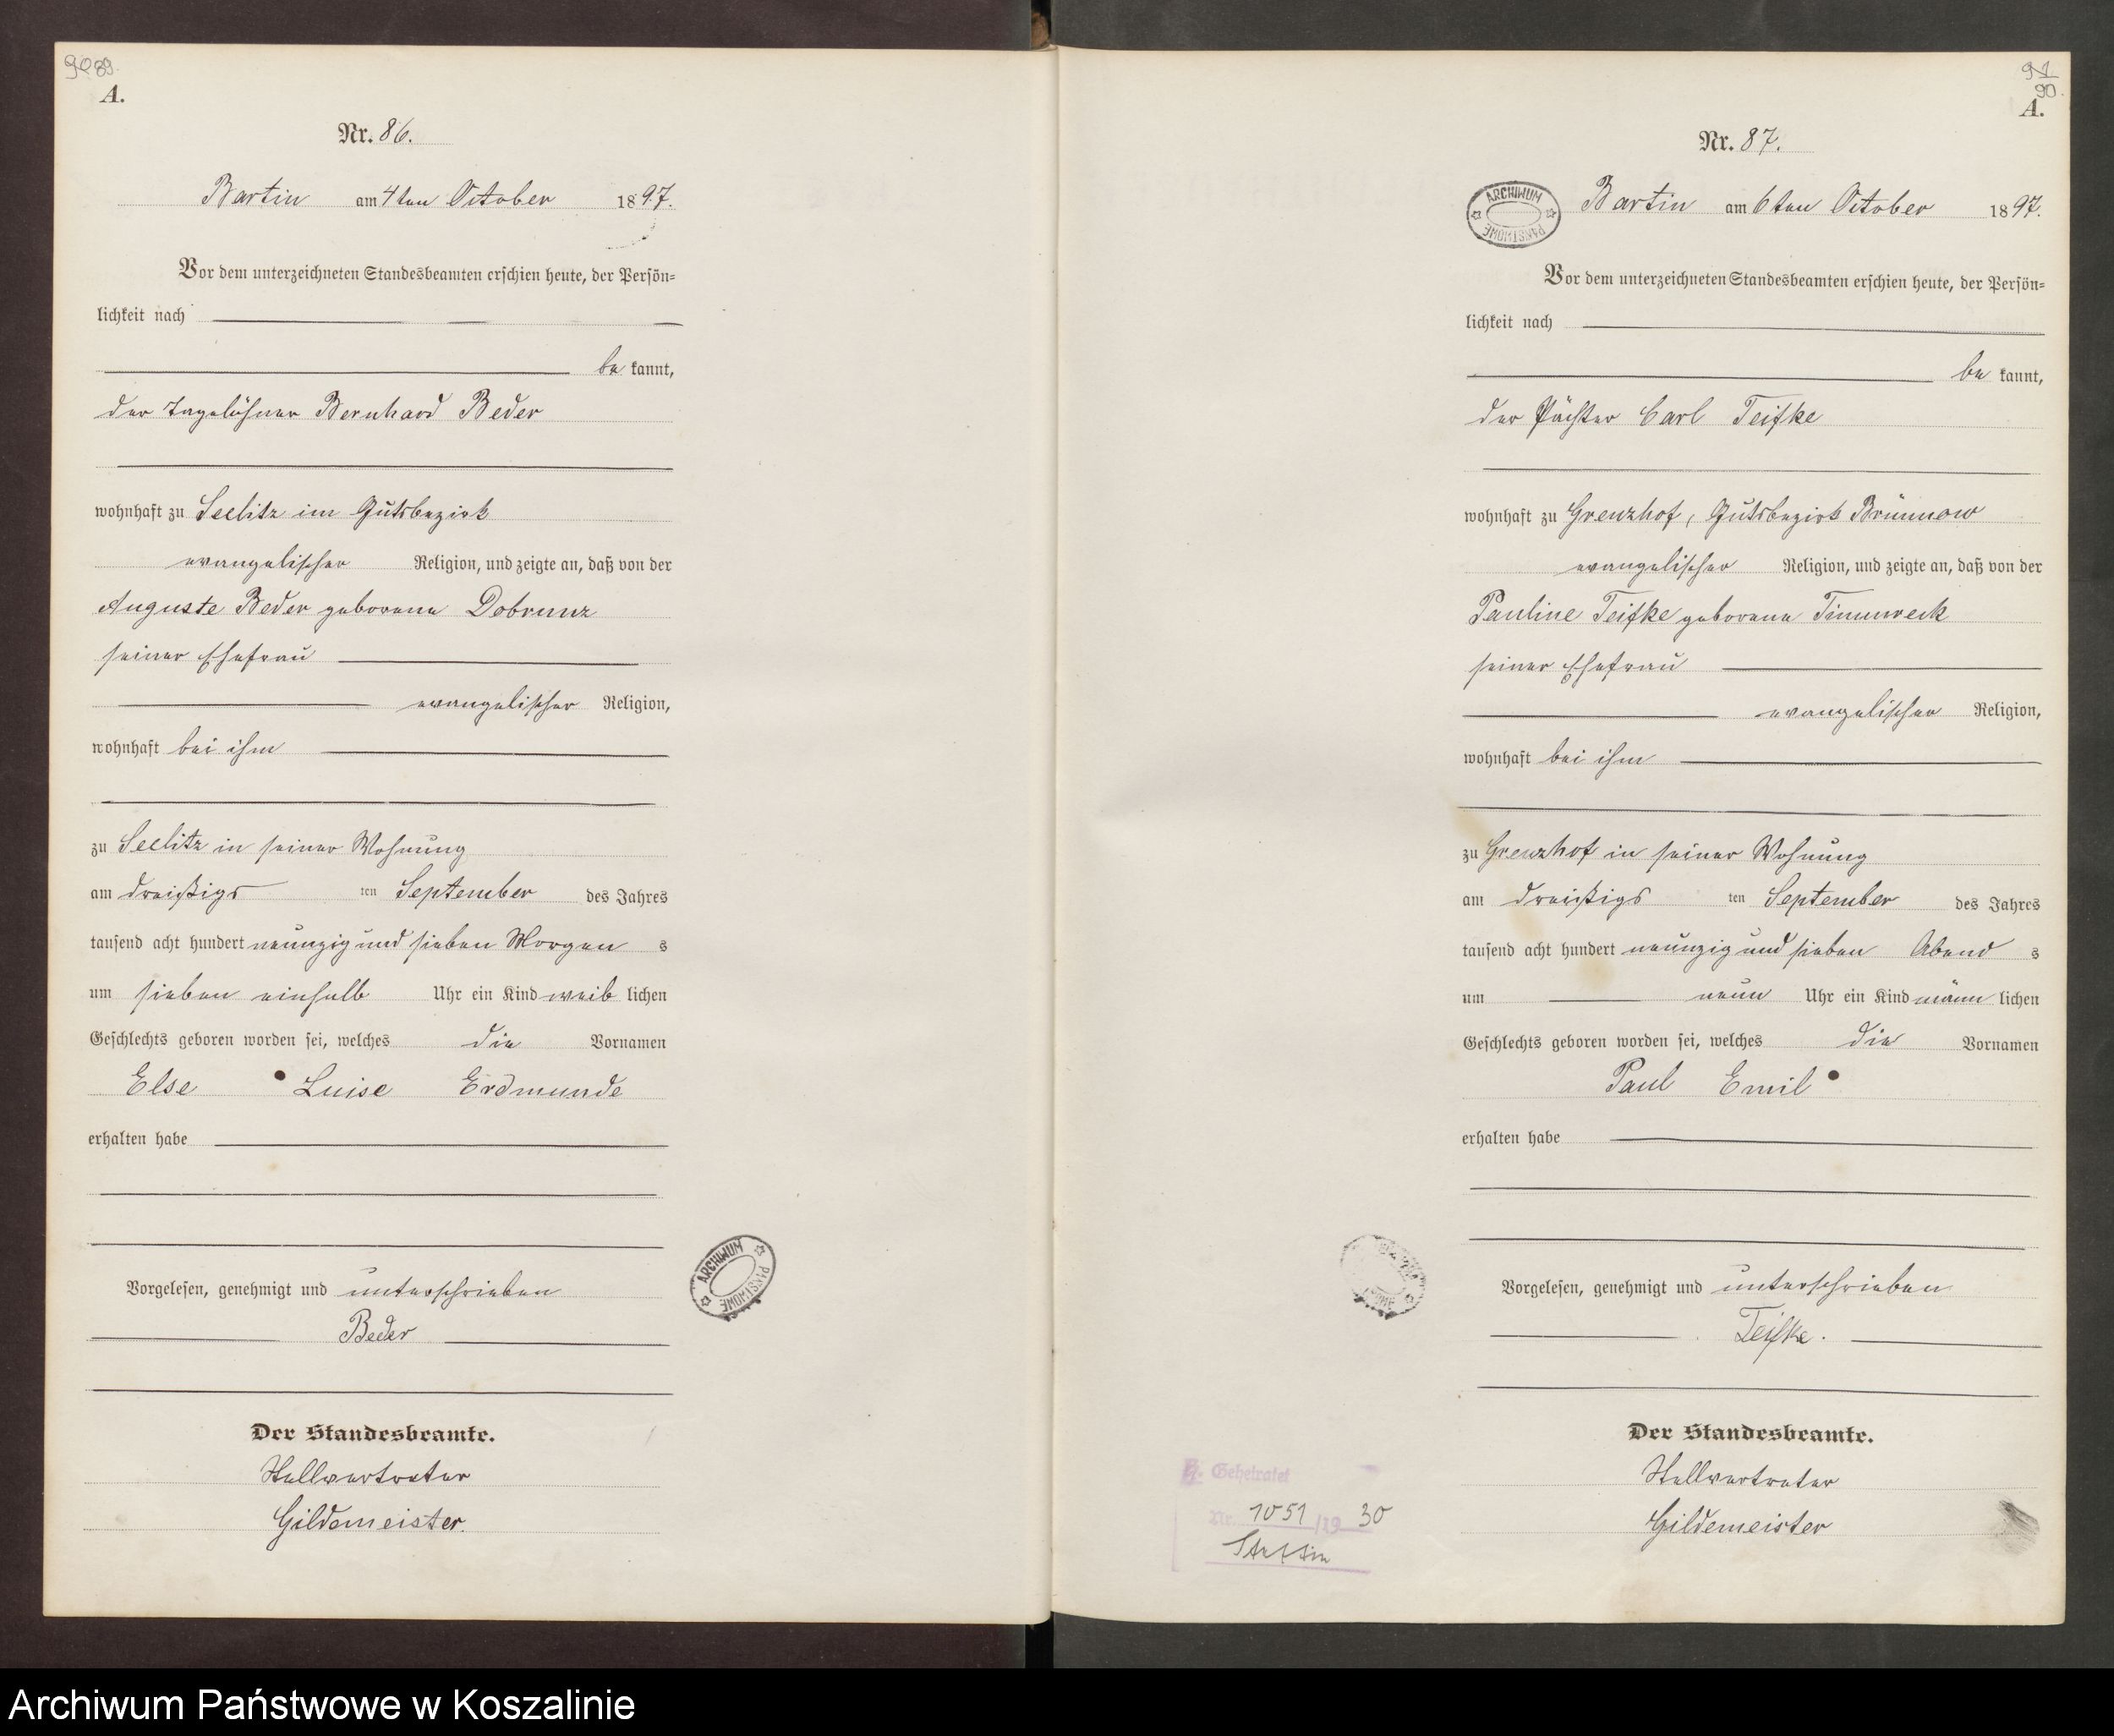 90 89.
A.
Nr. 86.
Bartin am 4ten October 1897.
Vor dem unterzeichneten Standesbeamten erschien heute, der Persön=
lichkeit nach
be kannt,
der Tagelöhner Bernhard Beder
wohnhaft zu Seelitz im Gutsbezirk
evangelischer Religion, und zeigte an, daß von der
Auguste Beder geborene Dobrunz
seiner Ehefrau
evangelischer Religion,
wohnhaft bei ihm
zu Seelitz in seiner Wohnung
am dreißigs ten September des Jahres
tausend acht hundert neunzig und sieben Morgen s
um sieben einhalb Uhr ein Kind weib lichen
Geschlechts geboren worden sei, welches die Vornamen
Else Luise Erdmunde
erhalten habe
Vorgelesen, genehmigt und unterschrieben
Beder
Der Standesbeamte.
Stellvertreter
Gildemeister.
ARCHIWUM PAŃSTWOWE
91
90.
A.
Nr. 87.
ARCHIWUM PAŃSTWOWE
Bartin am 6ten October 1897.
Vor dem unterzeichneten Standesbeamten erschien heute, der Persön=
lichkeit nach
be kannt,
der Pächter Carl Teifke
wohnhaft zu Grenzhof, Gutsbezirk Brünnow
evangelischer Religion, und zeigte an, daß von der
Pauline Teifke geborene Timmreck
seiner Ehefrau
evangelischer Religion,
wohnhaft bei ihm
zu Grenzhof in seiner Wohnung
am dreißigs ten September des Jahres
tausend acht hundert neunzig und sieben Abend s
um neun Uhr ein Kind männ lichen
Geschlechts geboren worden sei, welches die Vornamen
Paul Emil
erhalten habe
Vorgelesen, genehmigt und unterschrieben
Teifke.
Der Standesbeamte.
Stellvertreter
Gildemeister
Geheiratet
Nr. 1051/19 30
Stettin
Archiwum Państwowe w Koszalinie